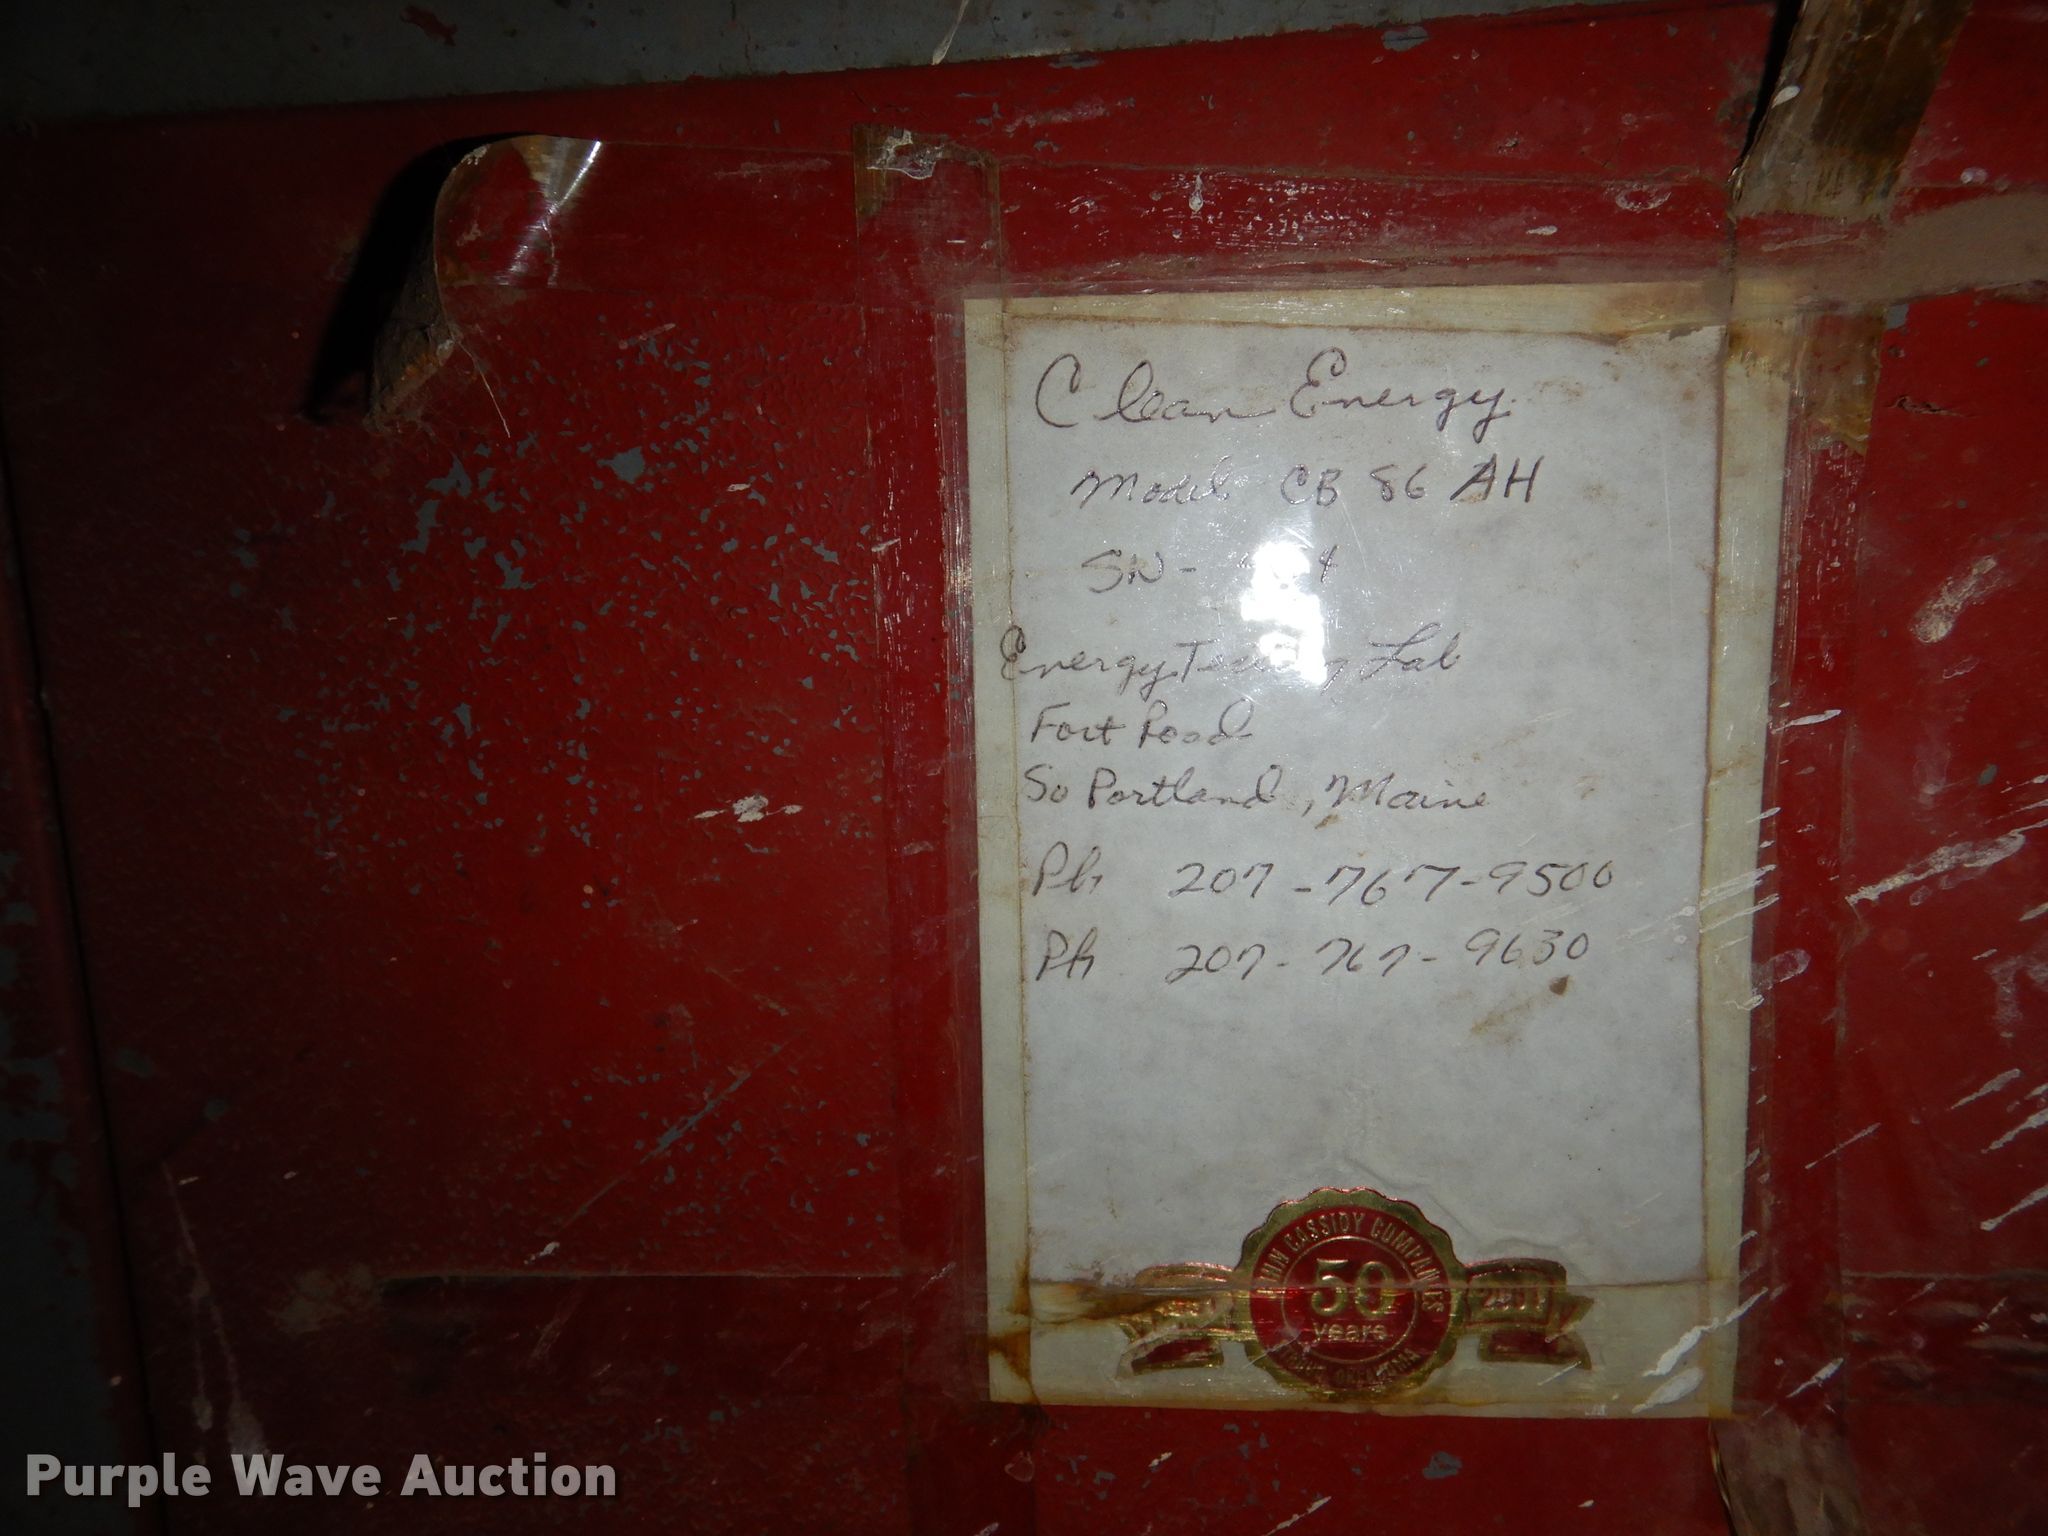 Clean Energy
Model CB 86 AH
SN -
Energy Lab
Fort Road
So Portland, Maine
Ph 207-767-9500
Ph 207-767-9630
CASSIDY COMPANIES
50
years
Purple Wave Auction